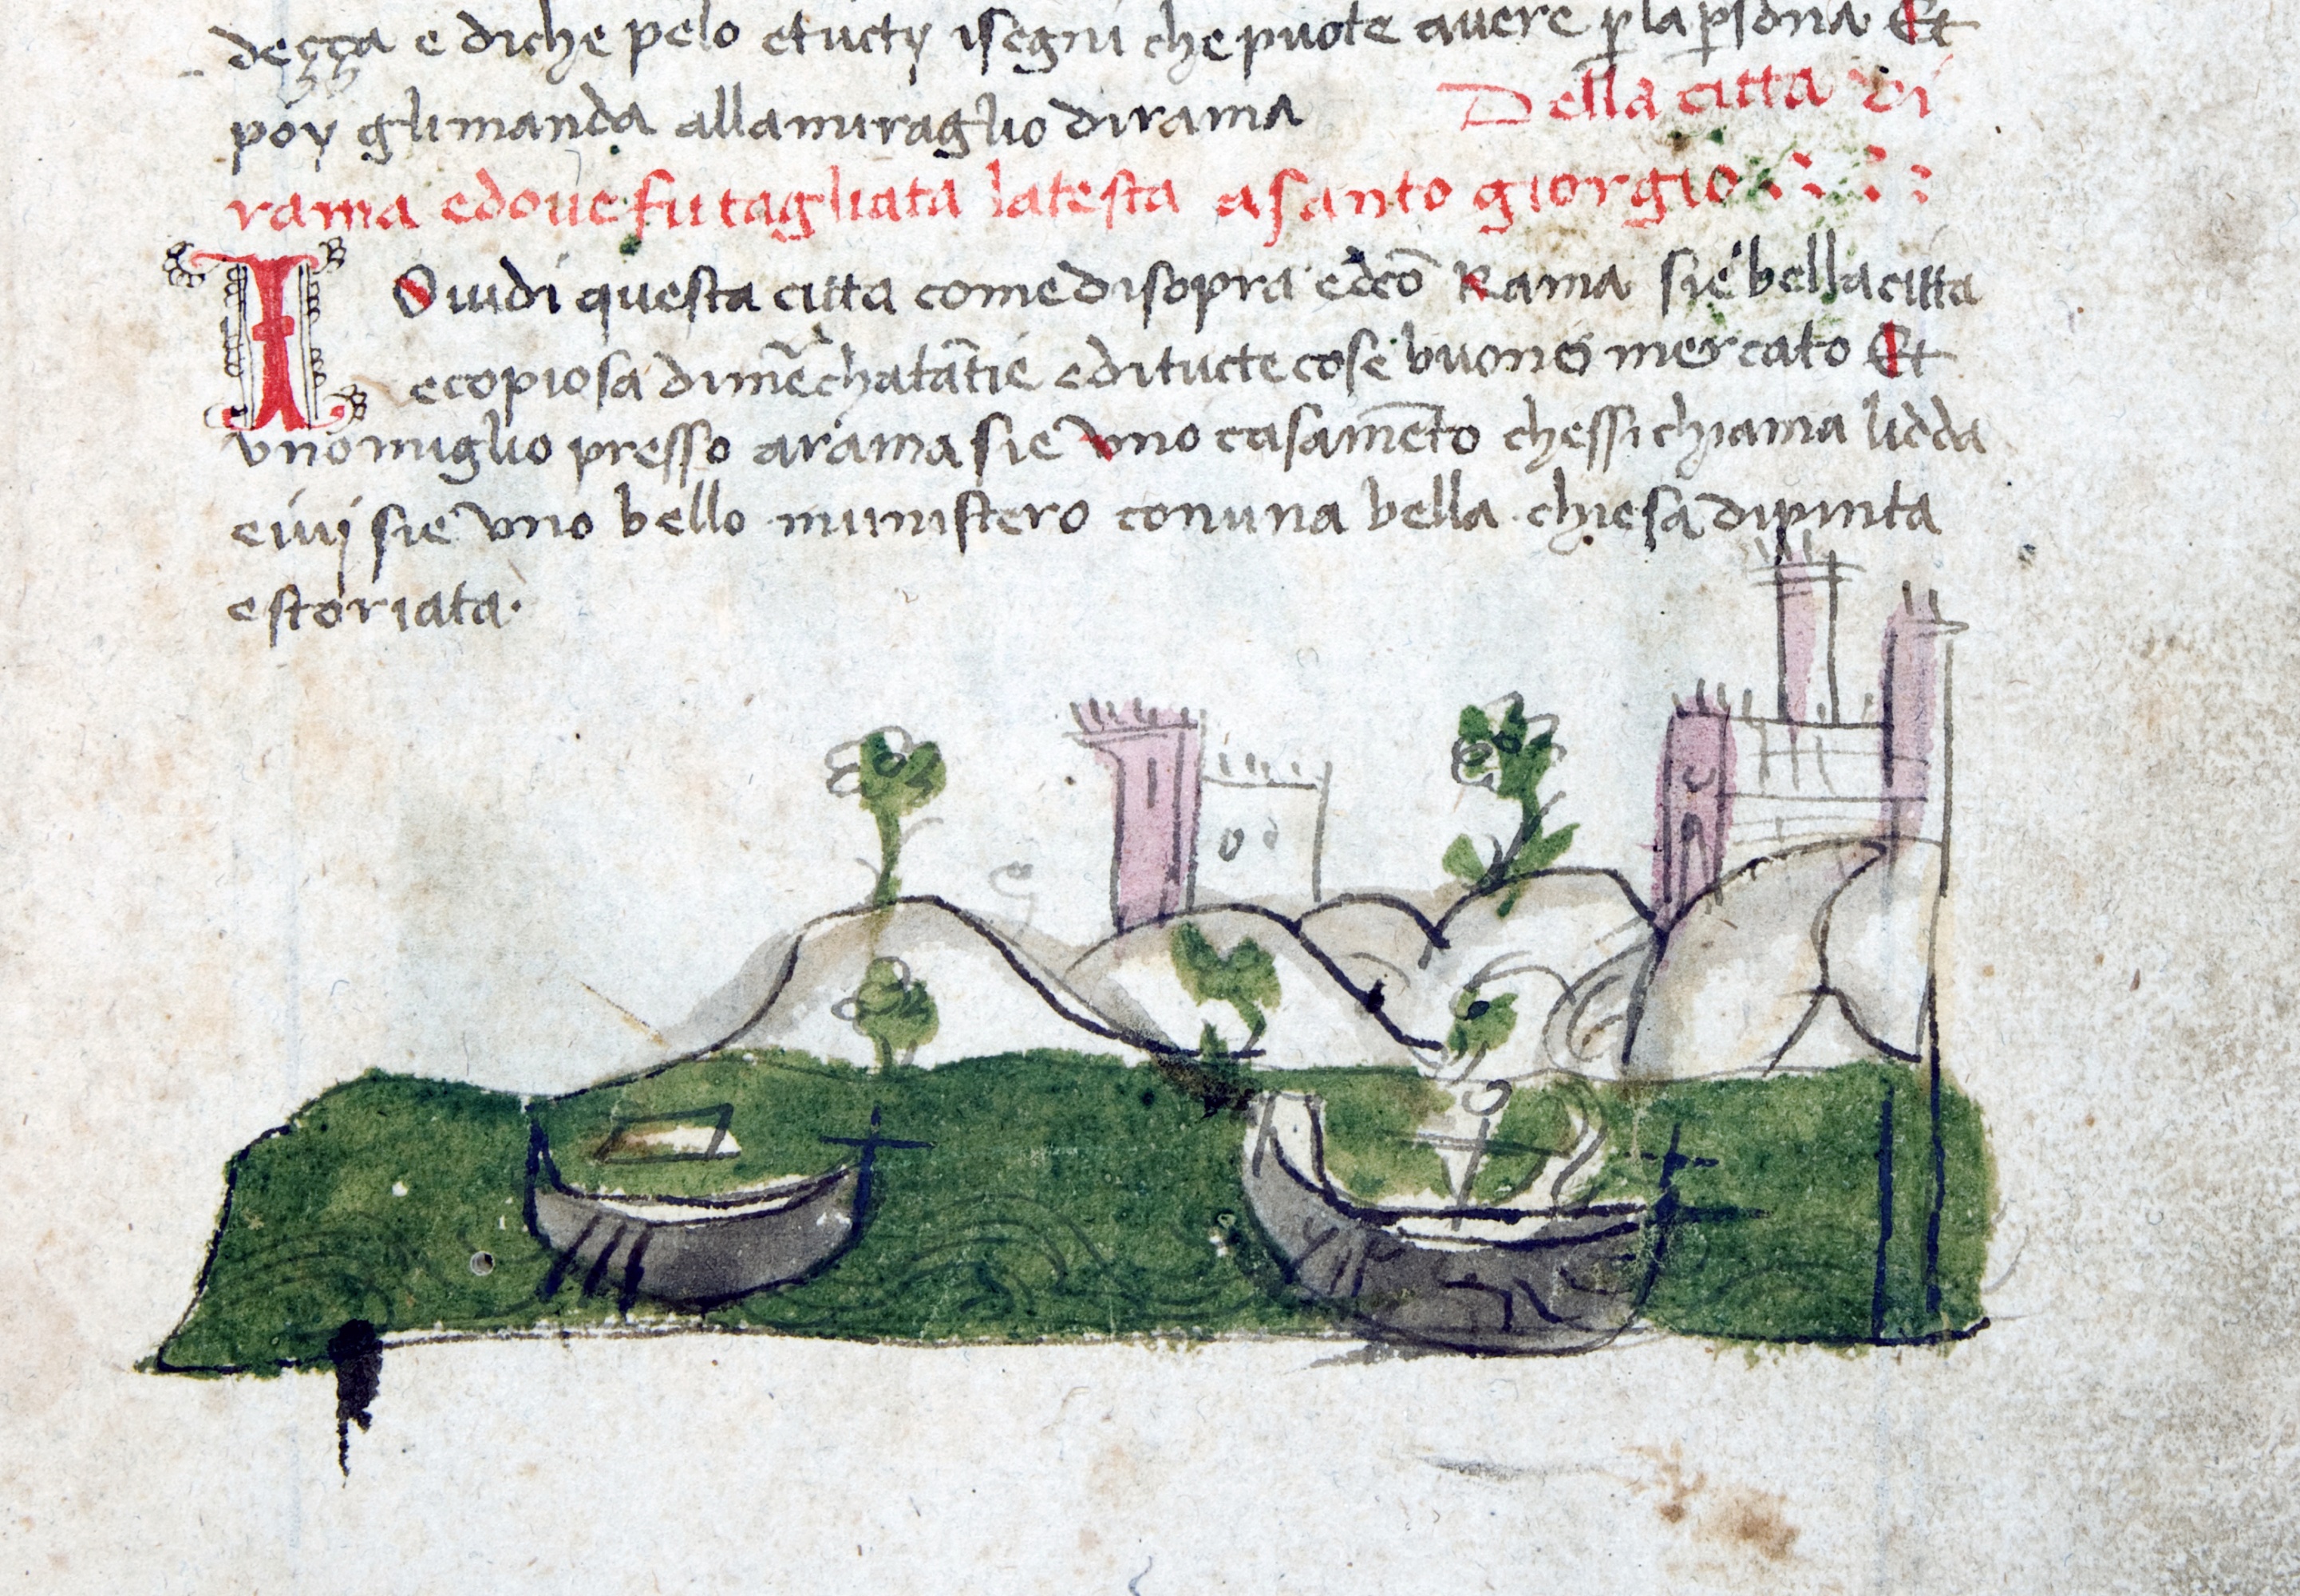 deçça e di che pelo et ucty i segni che puote avere p la psona. Et
poy gli manda allamiraglio dirama Della citta di
rama edoue fu tagliata latesta asanto giorgio
IO uidi questa citta come disopra edco Rama sie bella citta
ecopiosa dimechatatie editucte cose buonei mercato Et
vno miglio presso arama sie vno casameto chessi chiama lidda
eiuj sie vno bello munistero conuna bella chiesa dipinta
estoriata.